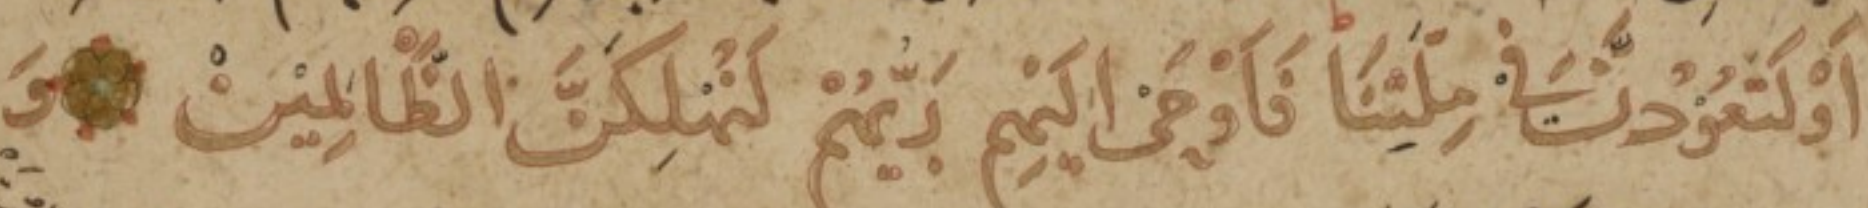 اَوْ لَتَعُوْدُنَّ فِىْ مِلَّتِنَا فَاَوْحٰى اِلَيْهِمْ رَبُّهُمْ لَنُهْلِكَنَّ الظّٰالِمِيْنَ وَ